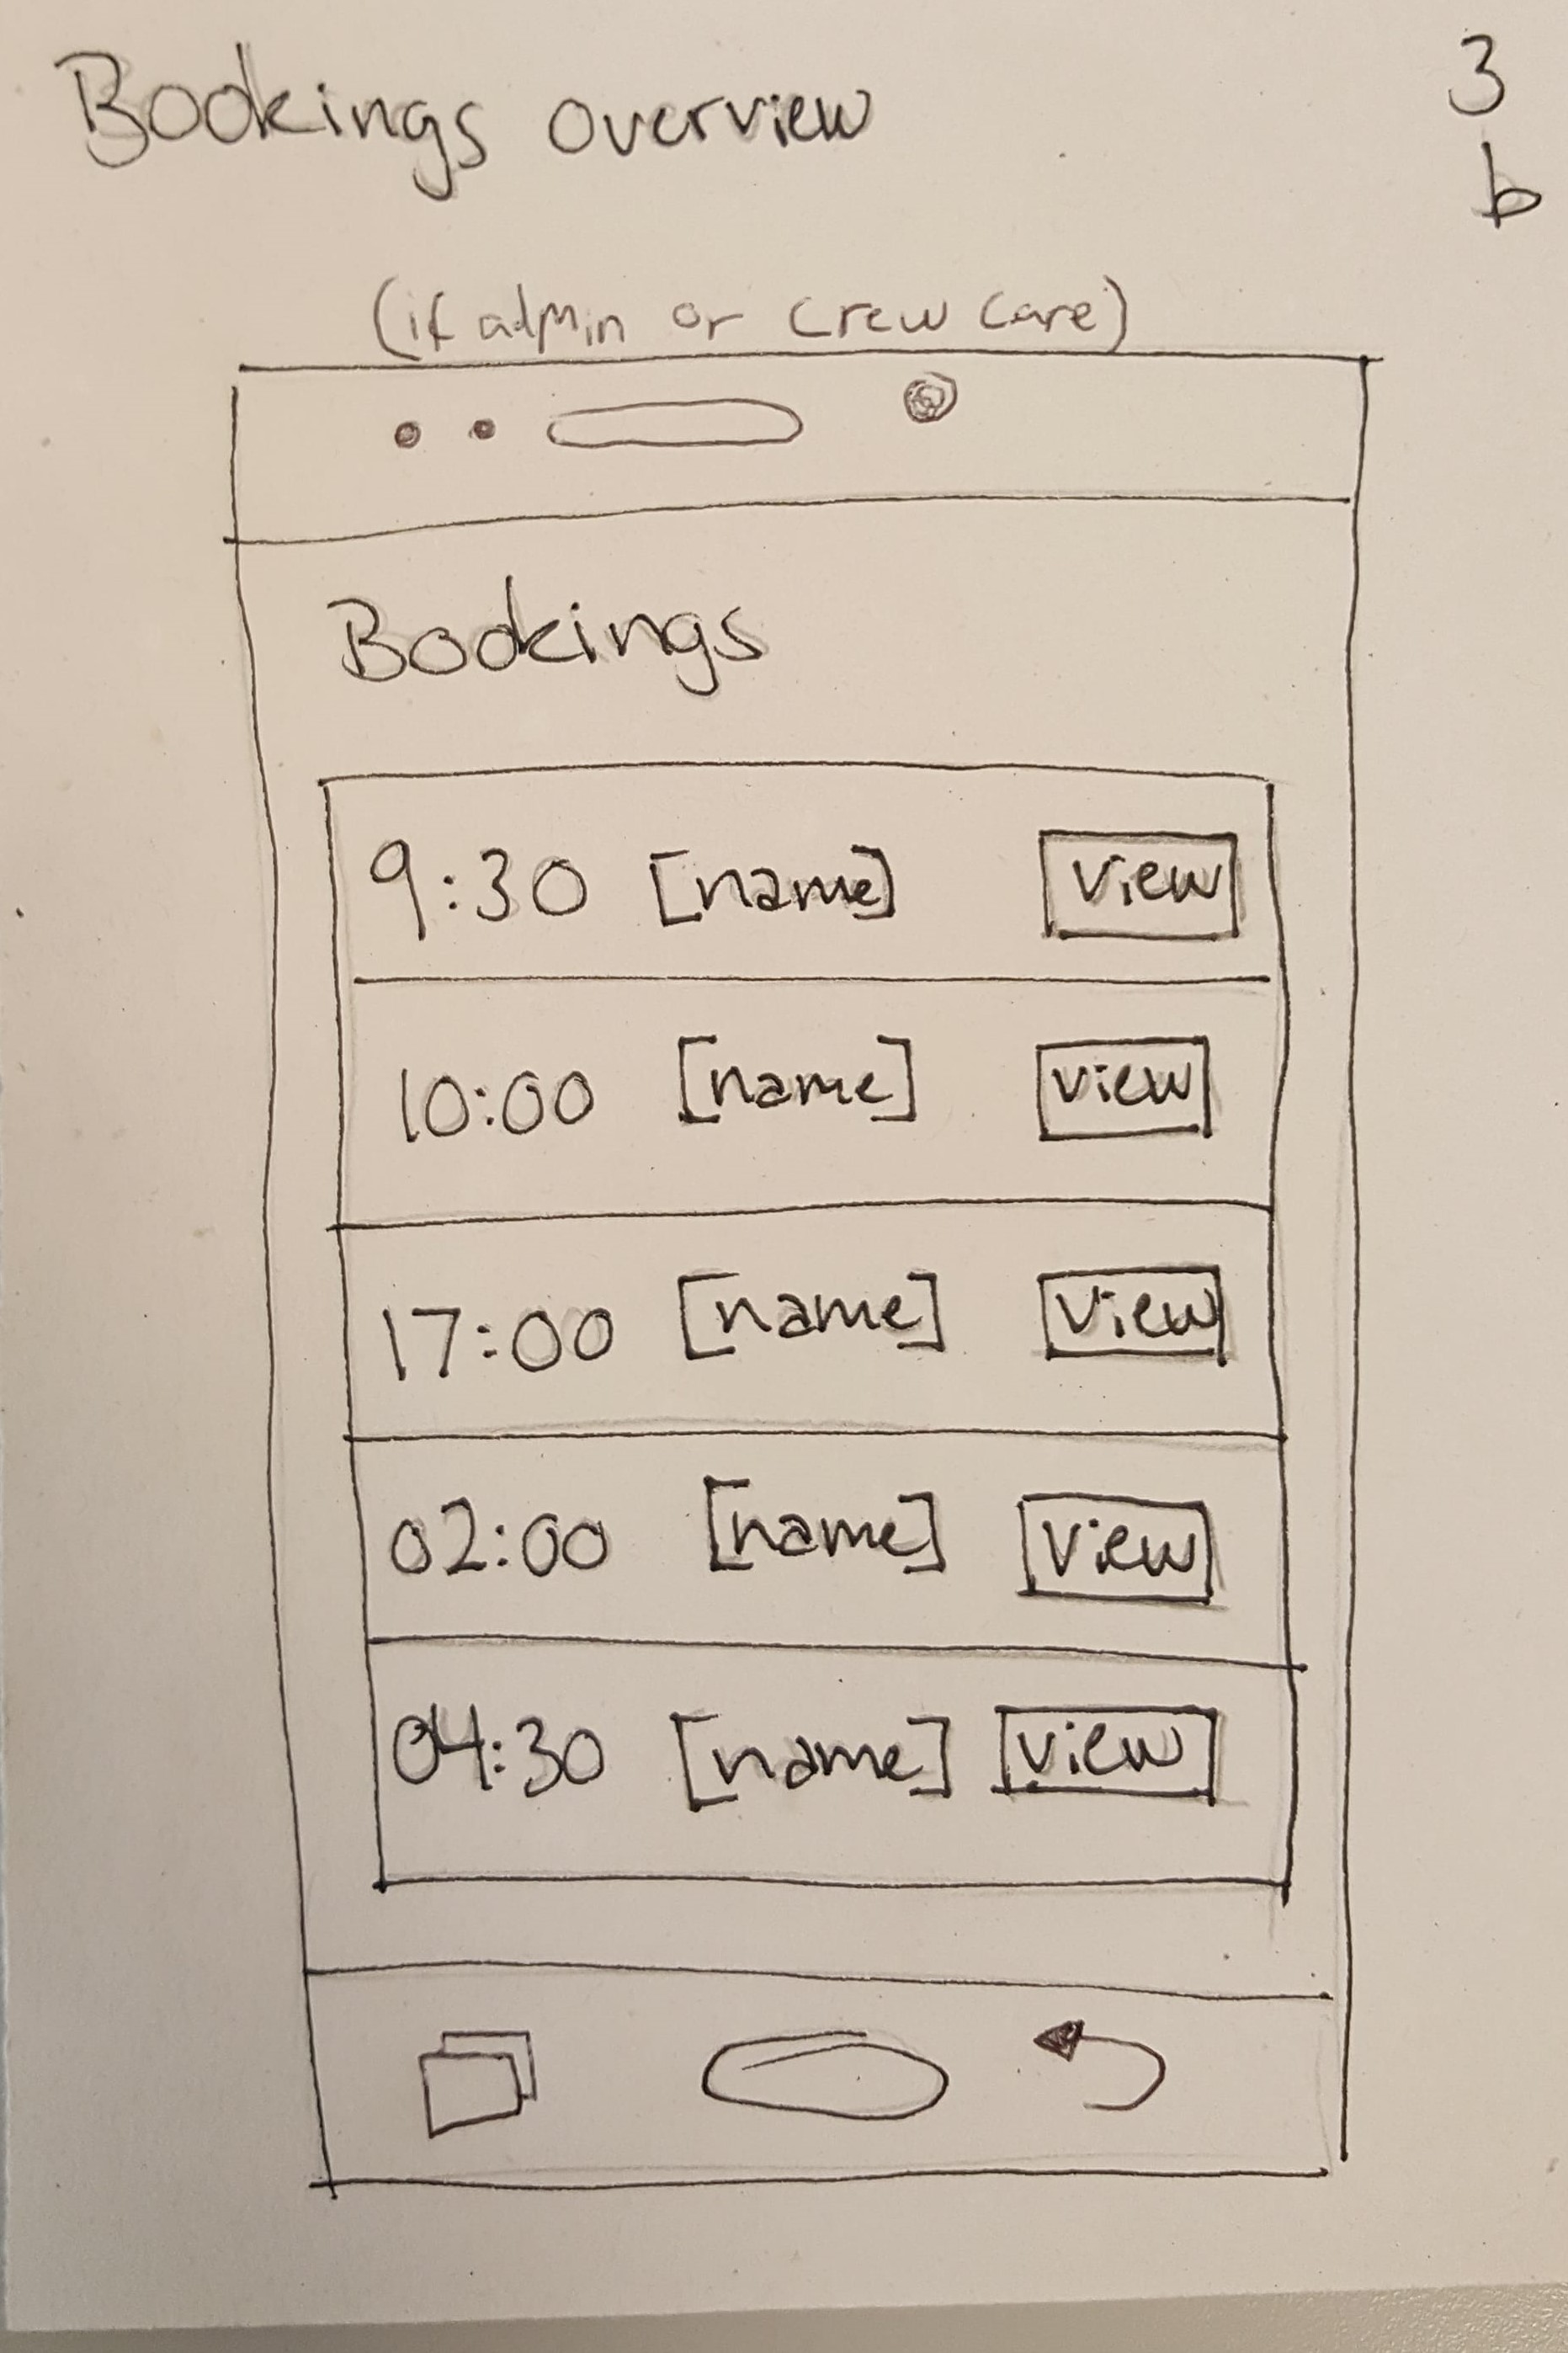 Bookings overview
3
b
(if admin or Crew Care)
Bookings
9:30 [name] View
10:00 [name] View
17:00 [name] View
02:00 [name] View
04:30 [name] View